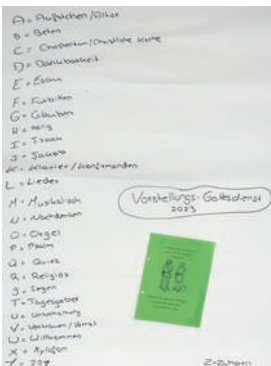 A = Aufstehen / Altar
B = Beten
C = Christentum / Christliche
D = Dankbarkeit
E = Esau
F = Fürbitten
G = Glauben
H = Heilig
I = Isaak
J = Jakob
K = Klavier / Konfirmanden
L = Lieder
M = Musikalisch
N = Nachdenken
O = Orgel
P = Psalm
Q = Quiz
R = Religiös
S = Segen
T = Tagesgebet
U = Unterhaltung
V = Vertrauen /
W = Willkommen
X = Xylofon
Y =
Z = Zuhören
Vorstellungs-Gottesdienst
2023